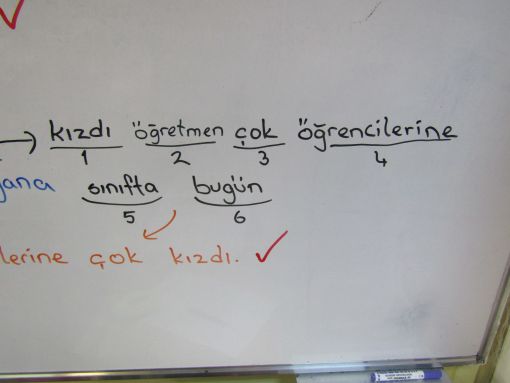 → kızdı öğretmen çok öğrencilerine
1 2 3 4
sınıfta bugün
5 6
lerine çok kızdı. ✓